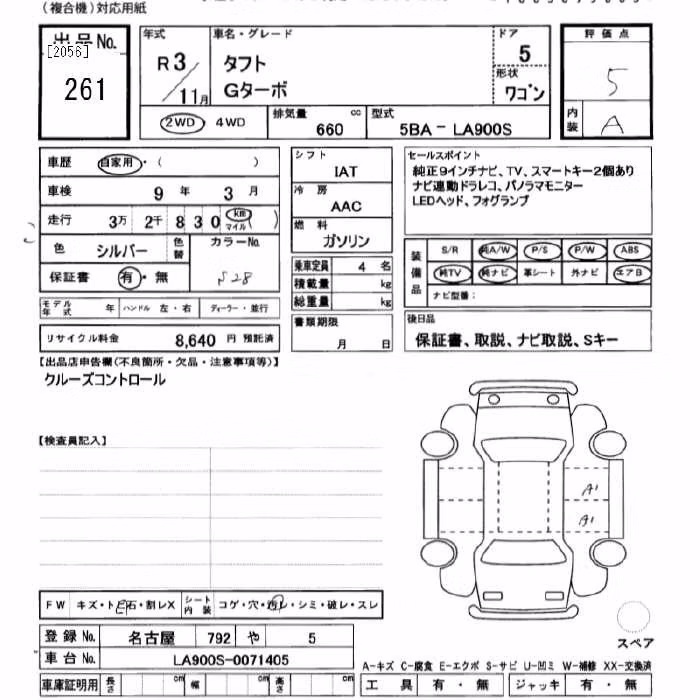 (複合機)対応用紙
出品No.
[2056]
261
年式 R3/11月
車名・グレード
タフト
Gターボ
ドア 5
形状 ワゴン
評価点 5
内装 A
2WD 4WD
排気量 660 cc
型式 5BA－LA900S
車歴 自家用・( )
車検 9年 3月
走行 3万 2千 8 3 0 (km マイル)
色 シルバー 色替 カラーNo. S28
保証書 有・無
モデル年式 年 ハンドル 左・右 ディーラー・並行
リサイクル料金 8,640 円 預託済
シフト
IAT
冷房
AAC
燃料
ガソリン
乗車定員 4 名
積載量 kg
総重量 kg
書類期限
月 日
セールスポイント
純正9インチナビ、TV、スマートキー2個あり
ナビ連動ドラレコ、パノラマモニター
LEDヘッド、フォグランプ
装備品
S/R 純A/W P/S P/W ABS
純TV 純ナビ 革シート 外ナビ エアB
ナビ型番:
後日品
保証書、取説、ナビ取説、Sキー
【出品店申告欄(不良箇所・欠品・注意事項等)】
クルーズコントロール
【検査員記入】
A1
A1
スペア
FW キズ・トビ石・割レX シート内装 コゲ・穴・汚レ・シミ・破レ・スレ
登録No. 名古屋 792 や 5
車台No. LA900S-0071405
車庫証明用 長さ cm 幅 cm 高さ cm
A-キズ C-腐食 E-エクボ S-サビ U-凹ミ W-補修 XX-交換済
工具 有・無 ジャッキ 有・無